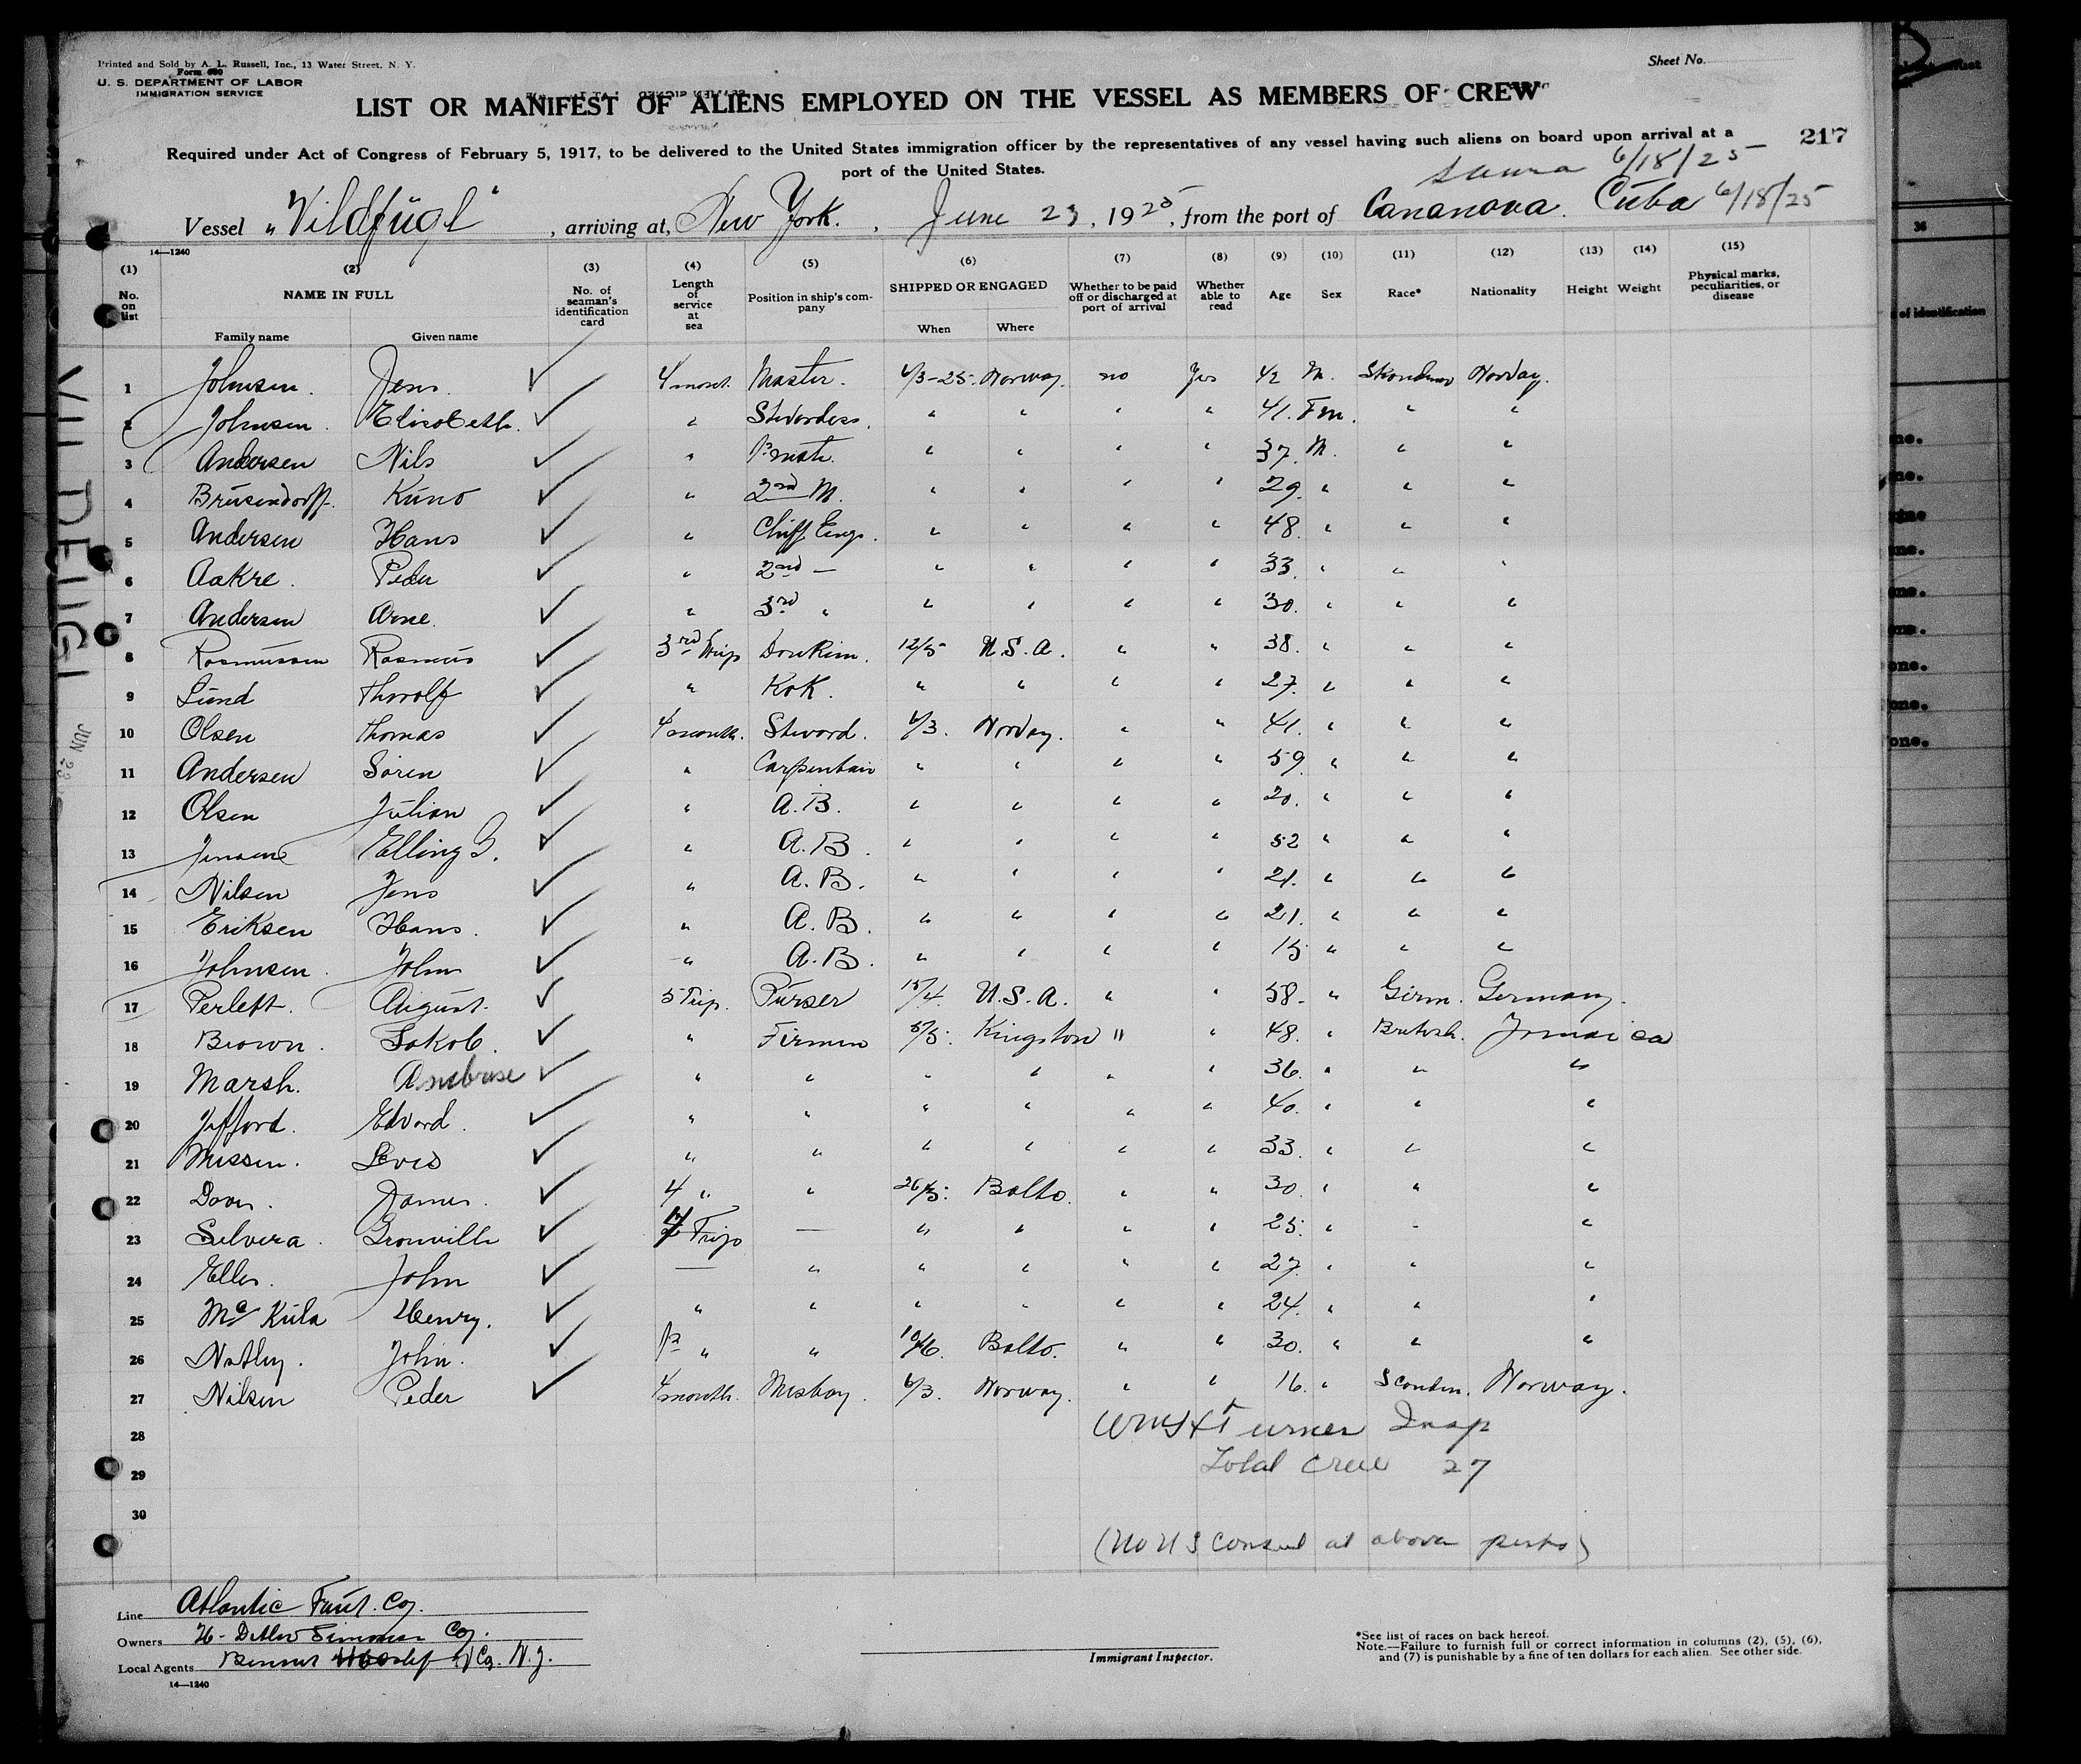 Printed and Sold by A. L. Russell, Inc., 13 Water Street, N. Y.
Form 680
U. S. DEPARTMENT OF LABOR
IMMIGRATION SERVICE
Sheet No.
LIST OR MANIFEST OF ALIENS EMPLOYED ON THE VESSEL AS MEMBERS OF CREW
217
Required under Act of Congress of February 5, 1917, to be delivered to the United States immigration officer by the representatives of any vessel having such aliens on board upon arrival at a
port of the United States.
6/18/25
Vessel "Vildfügl", arriving at, New York., June 23, 1925, from the port of Cananova. Cuba 6/18/25
14—1240
(1) (2) (3) (4) (5) (6) (7) (8) (9) (10) (11) (12) (13) (14) (15)
No. on list
NAME IN FULL
Family name Given name
No. of seaman's identification card
Length of service at sea
Position in ship's company
SHIPPED OR ENGAGED
When Where
Whether to be paid off or discharged at port of arrival
Whether able to read
Age Sex Race* Nationality Height Weight
Physical marks, peculiarities, or disease
1 Johnsen. Jens. ✓ 4 mont. Master. 6/3-25. Norway. no Yes 42 M. Norway.
2 Johnsen. Elisabeth. ✓ " Stvordess. " " " " 41. Fm. " "
3 Andersen Nils ✓ " 1st mate. " " " " 37. M. " "
4 Brüsendorff. Küno ✓ " 2nd M. " " " " 29. " " "
5 Andersen Hans ✓ " Chiff Eng. " " " " 48. " " "
6 Aakre. Peder ✓ " 2nd — " " " " 33. " " "
7 Andersen Arne. ✓ " 3rd " " " " " 30. " " "
8 Rasmussen Rasmus ✓ 3rd Trip Donkim. 12/5 U.S.A. " " 38. " " "
9 Lünd Thorolf ✓ " Kok. " " " " 27. " " "
10 Olsen Thomas ✓ 4 month. Stvord. 6/3. Norway. " " 41. " " "
11 Andersen Sören ✓ " Carpentair " " " " 59 " " "
12 Olsen Julian ✓ " A.B. " " " " 20. " " "
13 Elling G. ✓ " A.B. " " " " 52 " " "
14 Nilsen Jens ✓ " A.B. " " " " 21. " " "
15 Eriksen Hans. ✓ " A.B. " " " " 21. " " "
16 Johnsen. John ✓ " A.B. " " " " 15 " " "
17 Perleft. August. ✓ 5 Trip. Pürser 15/4. U.S.A. " " 58. " Girm. Germany.
18 Brown. Jakob. ✓ " Firmen 5/5. Kingston " " 48. " British. Jamaica
19 Marsh. Ambrose ✓ " " " " " " 36. " " "
20 Jefford. Edvord. ✓ " " " " " " 40. " " "
21 Missen. Levis ✓ " " " " " " 33. " " "
22 James. ✓ 4 " " 26/5. Balto. " " 30. " " "
23 Silvera. Granville ✓ 4 Trip — " " " " 25. " " "
24 Elles. John ✓ — " " " " " 27. " " "
25 Henry. ✓ " " " " " " 24. " " "
26 John. ✓ 1st " " 10/6. Balto. " " 30. " " "
27 Nilsen Peder ✓ 4 month. Mesboy. 6/3. Norway. " " 16. " Scandin. Norway.
28 Turner Insp
29 Total crew 27
30
(No U S Consul at above ports)
Line Atlantic Fruit. Coy.
Owners Coy.
Local Agents & Co. N.Y.
14—1240
Immigrant Inspector.
*See list of races on back hereof.
Note.—Failure to furnish full or correct information in columns (2), (5), (6),
and (7) is punishable by a fine of ten dollars for each alien. See other side.
VILDFUGL
JUN 23
36
of identification